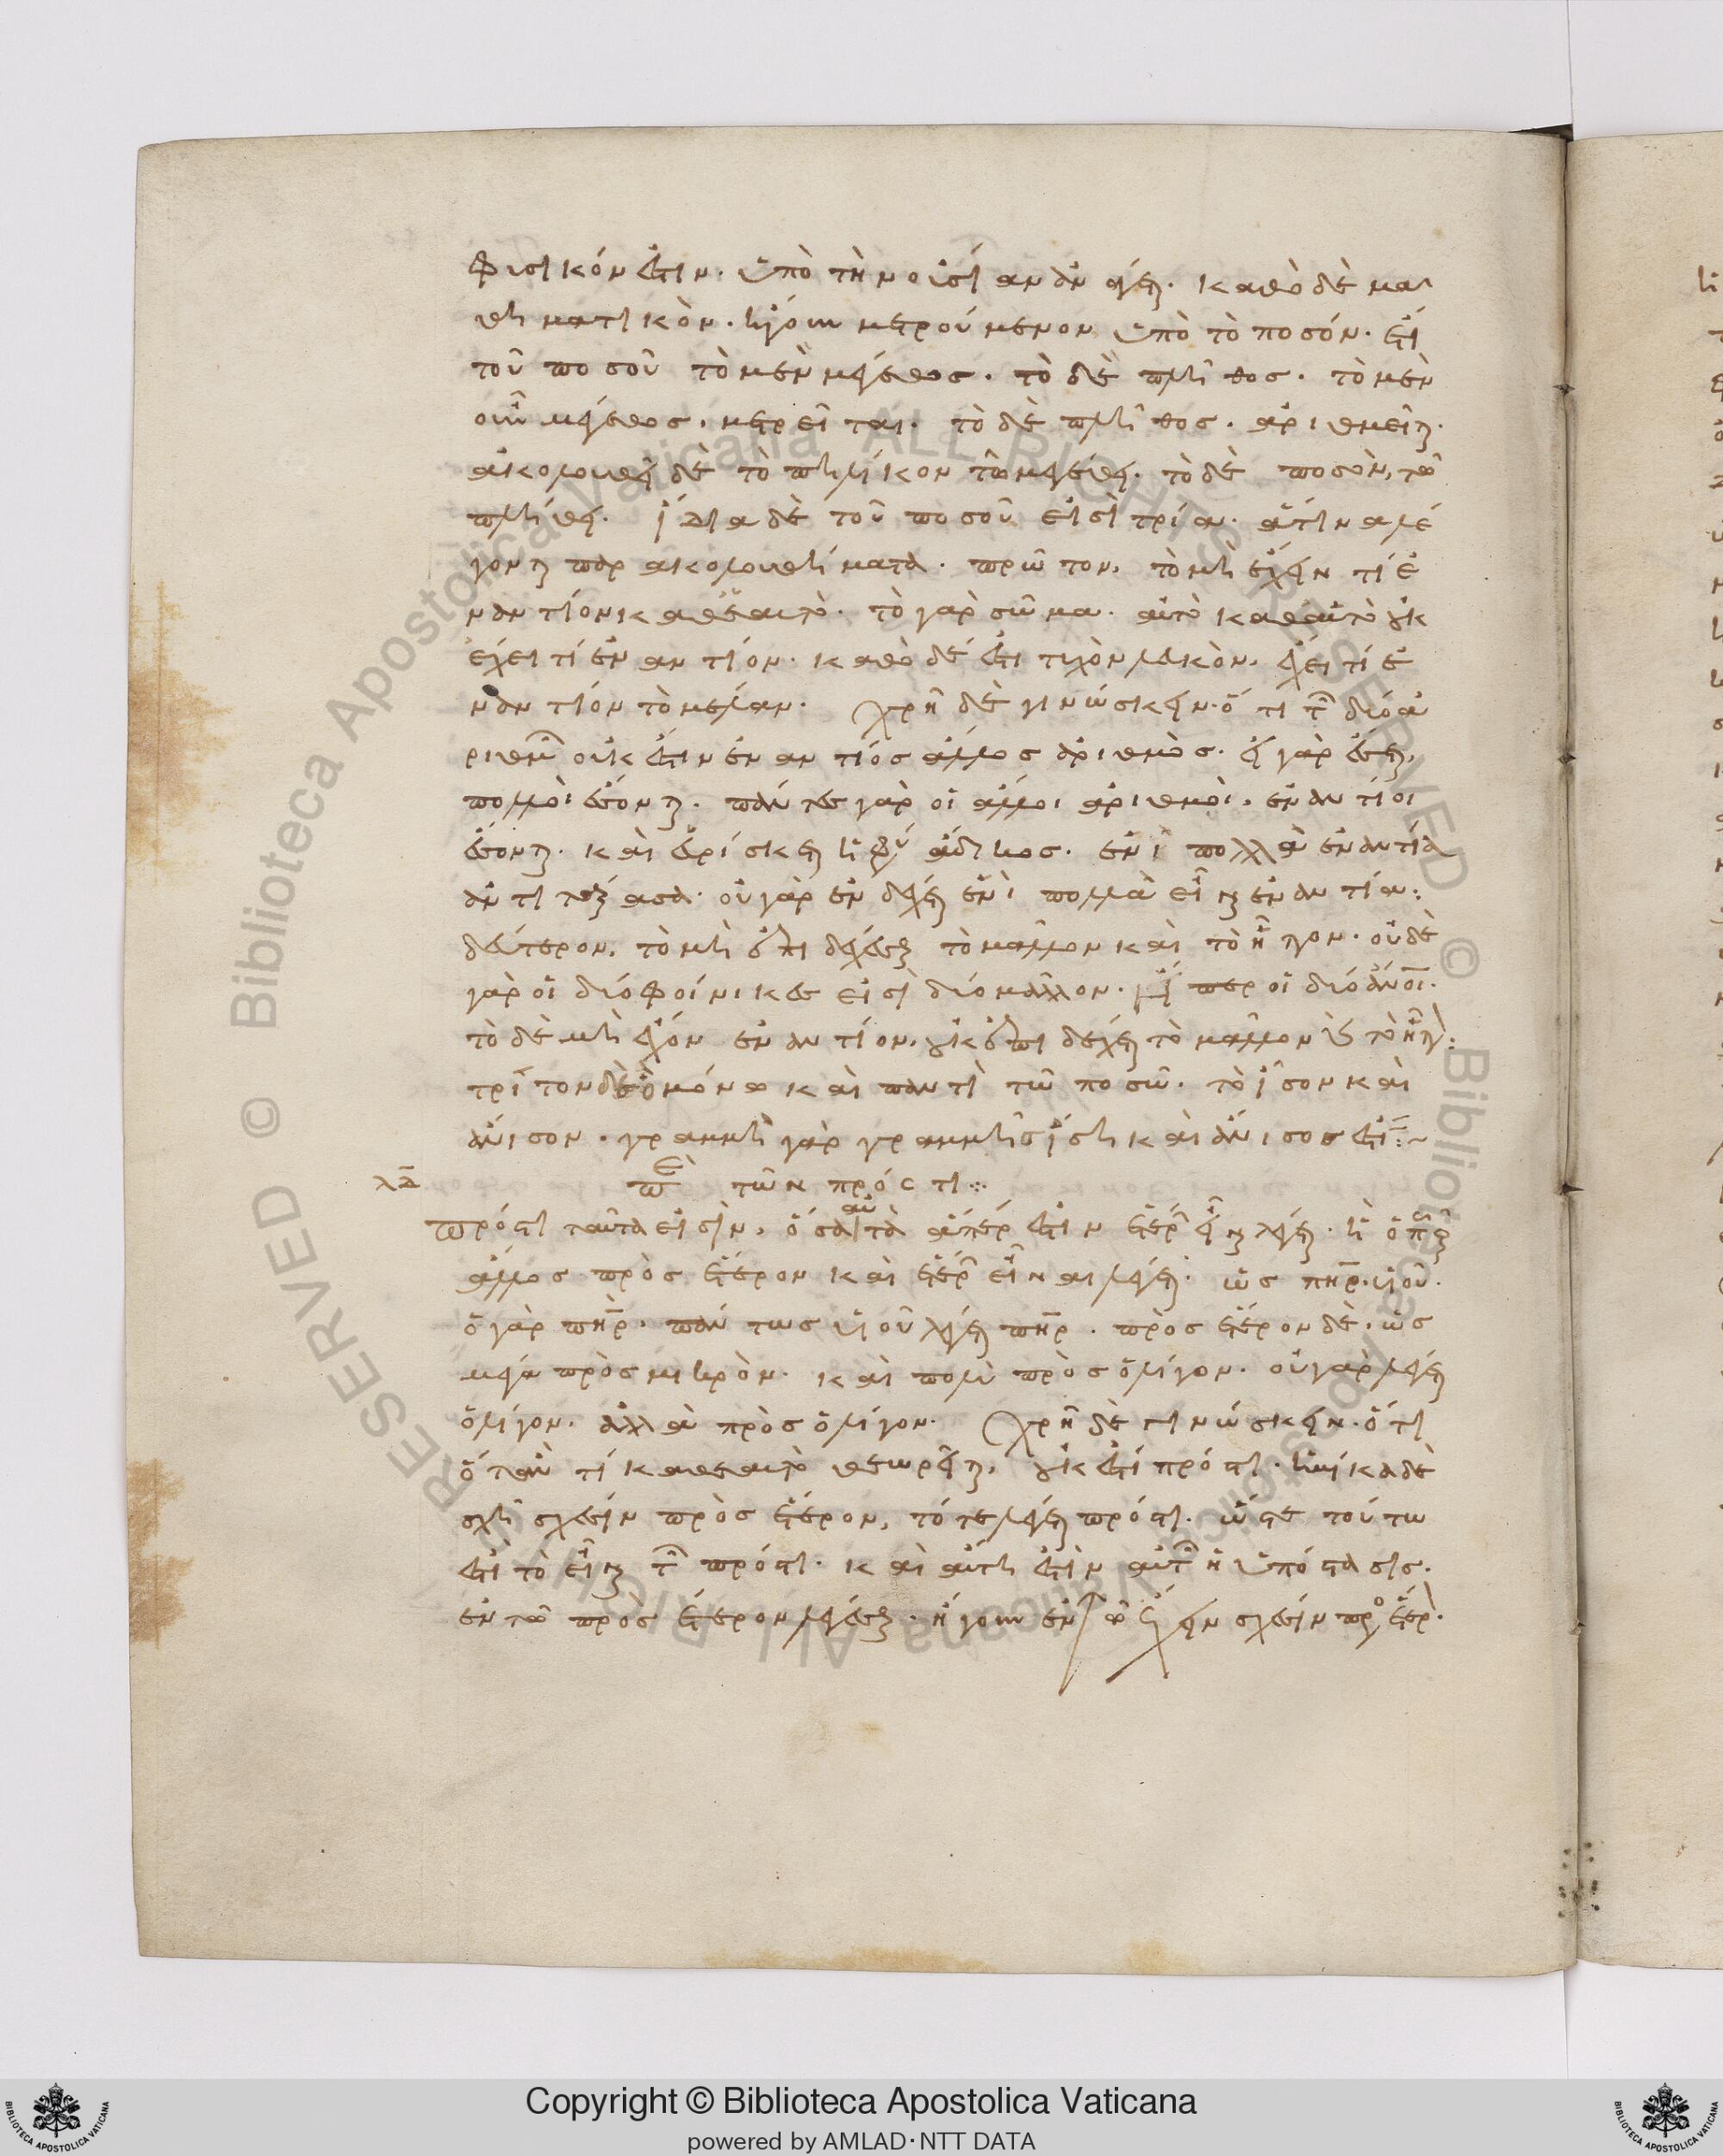 φυσικόν ἐστιν· ὑπὸ τὴν οὐσίαν ἀνάγεται· καθὸ δὲ μα
θηματικὸν· ἤγουν μετρούμενον ὑπὸ τὸ ποσόν· ἔτι
τοῦ ποσοῦ τὸ μὲν μέγεθος· τὸ δὲ πλῆθος· τὸ μὲν
οὖν μέγεθος, μετρεῖται· τὸ δὲ πλῆθος, ἀριθμεῖται·
ἀκολουθεῖ δὲ τὸ πηλίκον τῶ μεγέθει· τὸ δὲ ποσὸν, τῶ
πλήθει· ἴδια δὲ τοῦ ποσοῦ εἰσὶ τρία· ἅτινα λέ
γονται παρακολουθήματα· πρῶτον, τὸ μὴ ἔχειν τί ἐ
ναντίον καθεαυτὸ· τὸ γὰρ σῶμα, αὐτὸ καθαὑτὸ οὐκ
ἔχει τί ἐναντίον· καθὸ δέ ἐστι τυχὸν λευκὸν, ἔχει τί ἐ
ναντίον τὸ μέλαν· χρὴ δὲ γινώσκειν· ὅτι τῶ δύο ἀ
ριθμῶ οὐκ ἔστιν ἐναντίος ἄλλος ἀριθμὸς· εἰ γὰρ ἔσται,
πολλοὶ ἔσονται· πάντες γὰρ οἱ ἄλλοι ἀριθμοὶ, ἐναντίοι
ἔσονται· καὶ εὑρίσκεται ἡ φύσις ἄδικος· ἑνὶ πολλὰ ἐναντία
ἀντιτάξασα· οὐ γὰρ ἐνδέχεται ἑνὶ πολλὰ εἶναι ἐναντία:
δεύτερον, τὸ μὴ ἐπιδέχεσθαι τὸ μᾶλλον καὶ τὸ ἧττον· οὐδὲ
γὰρ οἱ δύο φοίνικες εἰσὶ δύο μᾶλλον· ἤπερ οἱ δύο ἄνοι·
τὸ δὲ μὴ ἔχον ἐναντίον, οὐκ ἐπιδέχεται τὸ μᾶλλον καὶ τὸ ἧττον:
τρίτον δὲ ὃ μόνω καὶ παντὶ τῶ ποσῶ· τὸ ἴσον καὶ
ἄνισον· γραμμὴ γὰρ γραμμῆς ἴση καὶ ἄνισος ἐστί:~
λδ περὶ τῶν πρός τι:·
πρός τι ταῦτα εἰσὶν, ὅσα αὐτὰ ἅπερ ἐστὶν ἑτέρων εἶναι λέγεται· ἢ ὁπωσοῦν
ἄλλως πρὸς ἕτερον καὶ ἑτέρων εἶναι λέγεται· ὡς πηρ· υἱοῦ·
ὁ γὰρ πηρ· πάντως υἱοῦ λέγεται πηρ· πρὸς ἕτερον δὲ, ὡς
μέγα πρὸς μικρὸν· καὶ πολὺ πρὸς ὀλίγον· οὐ γὰρ λέγεται
ὀλίγον· ἀλλὰ πρὸς ὀλίγον· χρὴ δὲ γινώσκειν· ὅτι
ὅταν τί καθεαυτὸ θεωρεῖται, οὐκ ἔστι πρός τι· ἡνίκα δὲ
σχῆ σχέσιν πρὸς ἕτερον, τότε λέγεται πρός τι· ὥστε τοῦτο
ἐστὶ τὸ εἶναι τῶν πρός τι· καὶ αὕτη ἐστὶν αὐτῶν ἡ ὑπόστασις·
ἐν τῶ πρὸς ἕτερον λέγεσθαι· ἤγουν ἐν τῶ ἔχειν σχέσιν πρὸς ἕτερον·